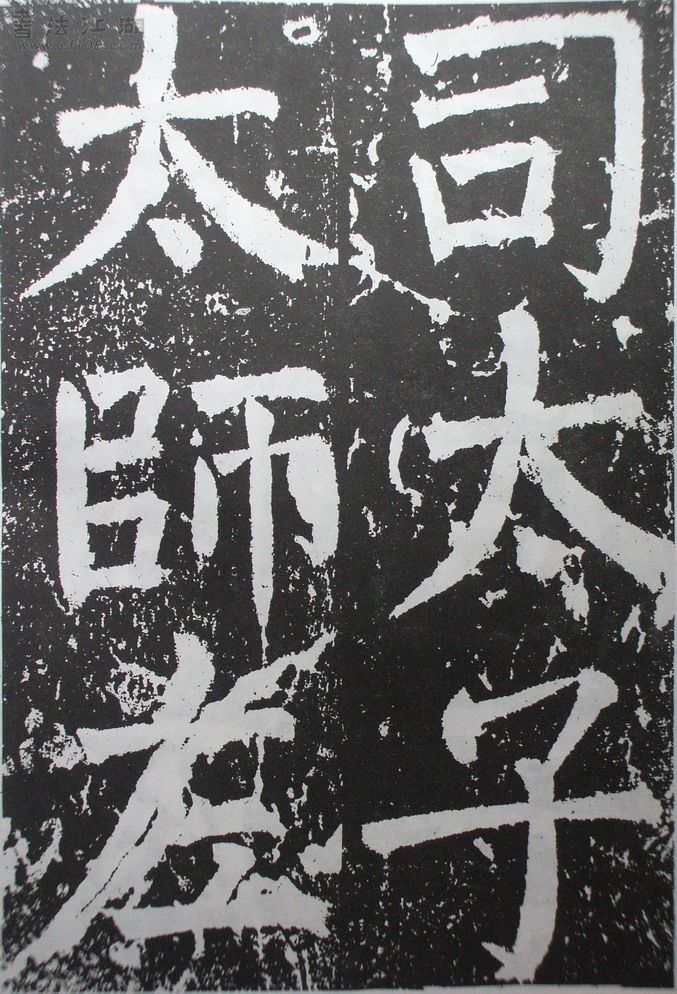 司太子
太師左
書法江湖
www.sf108.com